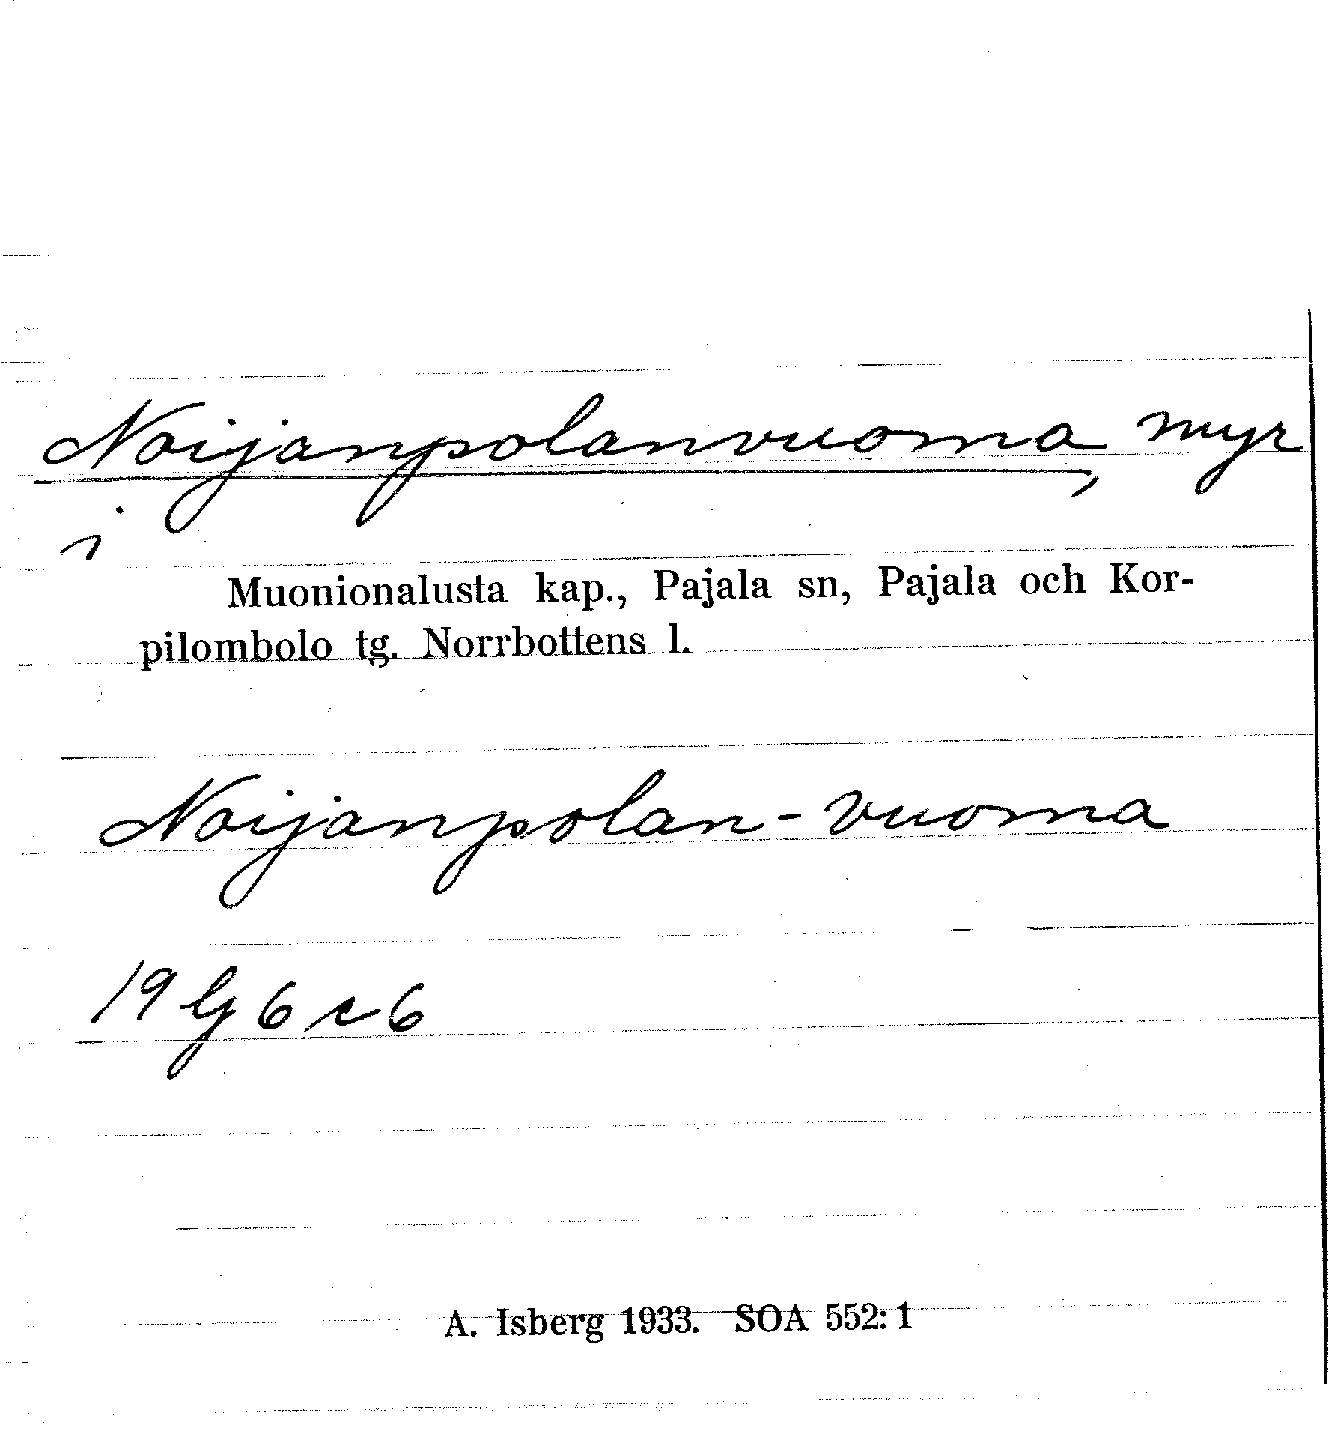 Noijanpolanvuoma, myr
i
Muonionalusta kap., Pajala sn, Pajala och Kor-
pilombolo tg. Norrbottens l.
Noijanpolan-vuoma
19 G 6 c 6
A. Isberg 1933. SOA 552: 1